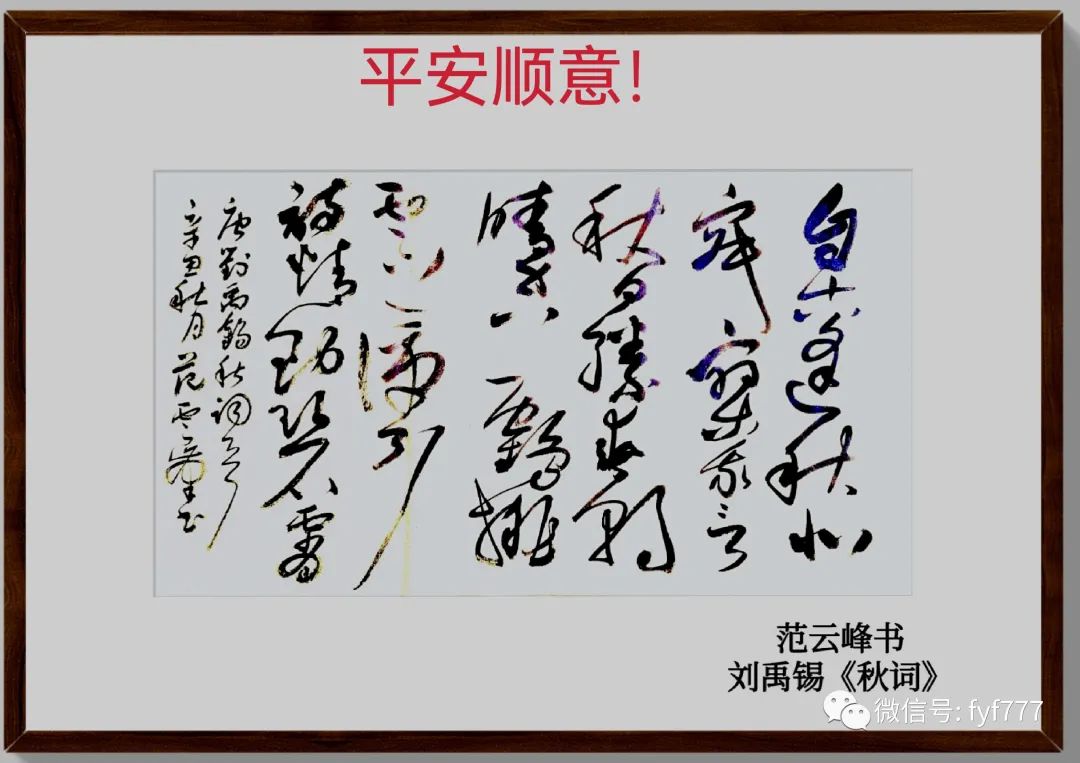 平安顺意!
自古逢秋悲
寂寥我言
秋日勝春朝
晴空一鶴排
雲上便引
詩情到碧霄
唐劉禹錫秋詞
辛丑秋月范雲峰书
范云峰书
刘禹锡《秋词》
微信号: fyf777